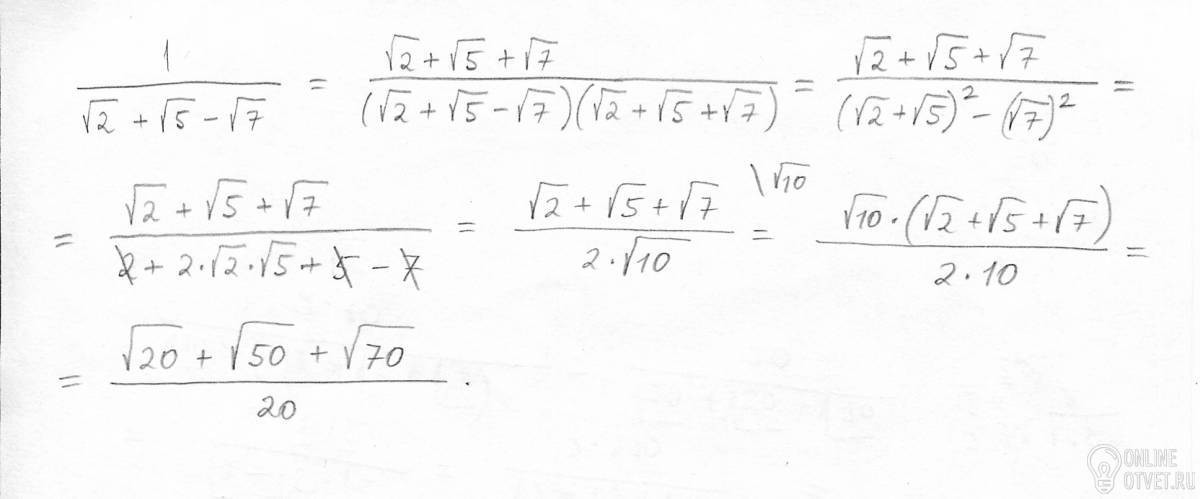 1 / (√2 + √5 − √7) = (√2 + √5 + √7) / ((√2 + √5 − √7)(√2 + √5 + √7)) = (√2 + √5 + √7) / ((√2 + √5)² − (√7)²) =
= (√2 + √5 + √7) / (2 + 2·√2·√5 + 5 − 7) = (√2 + √5 + √7) / (2·√10) \√10 = √10·(√2 + √5 + √7) / (2·10) =
= (√20 + √50 + √70) / 20 .
ONLINE
OTVET.RU